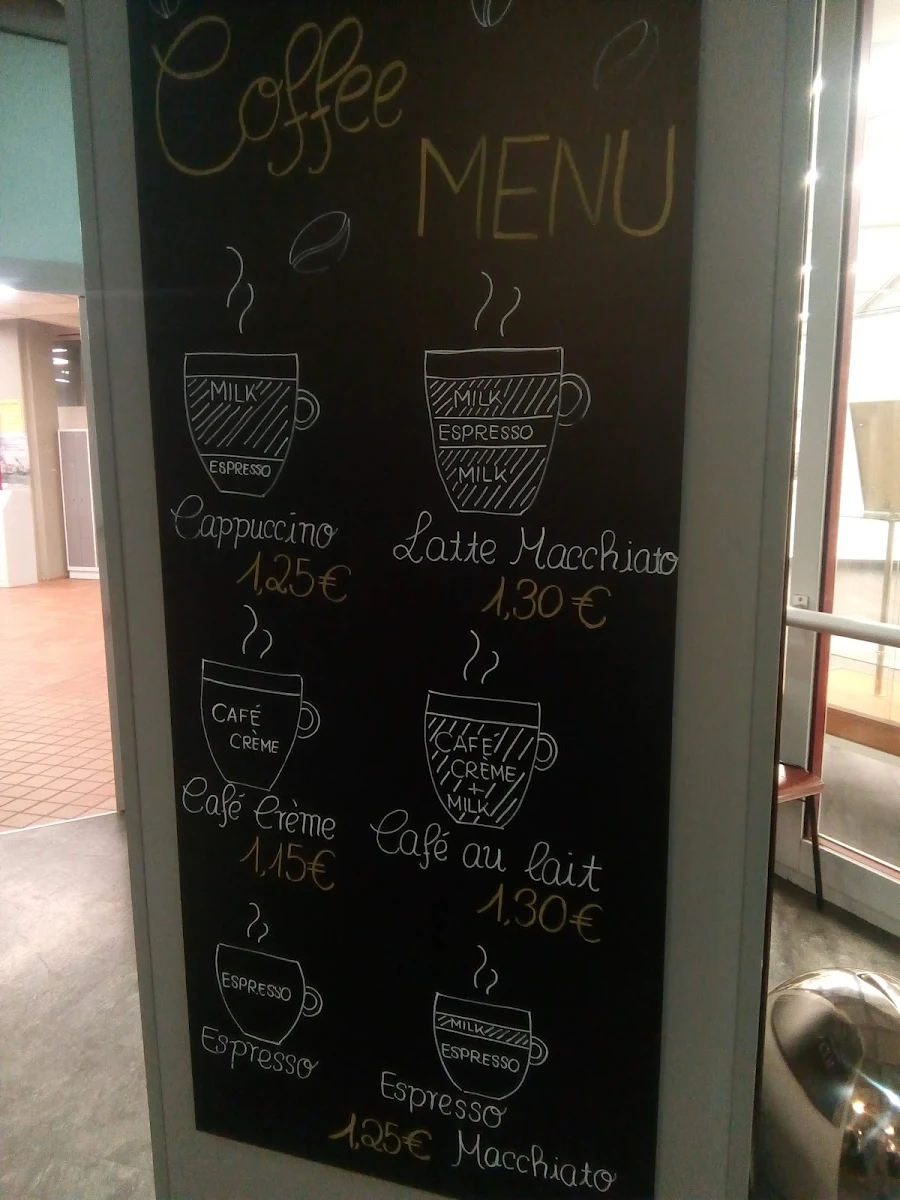 Coffee
MENU
MILK
ESPRESSO
Cappuccino
1,25€
MILK
ESPRESSO
MILK
Latte Macchiato
1,30€
CAFÉ
CRÈME
Café Crème
1,15€
CAFÉ
CRÈME
+
MILK
Café au lait
1,30€
ESPRESSO
Espresso
MILK
ESPRESSO
Espresso
Macchiato
1,25€